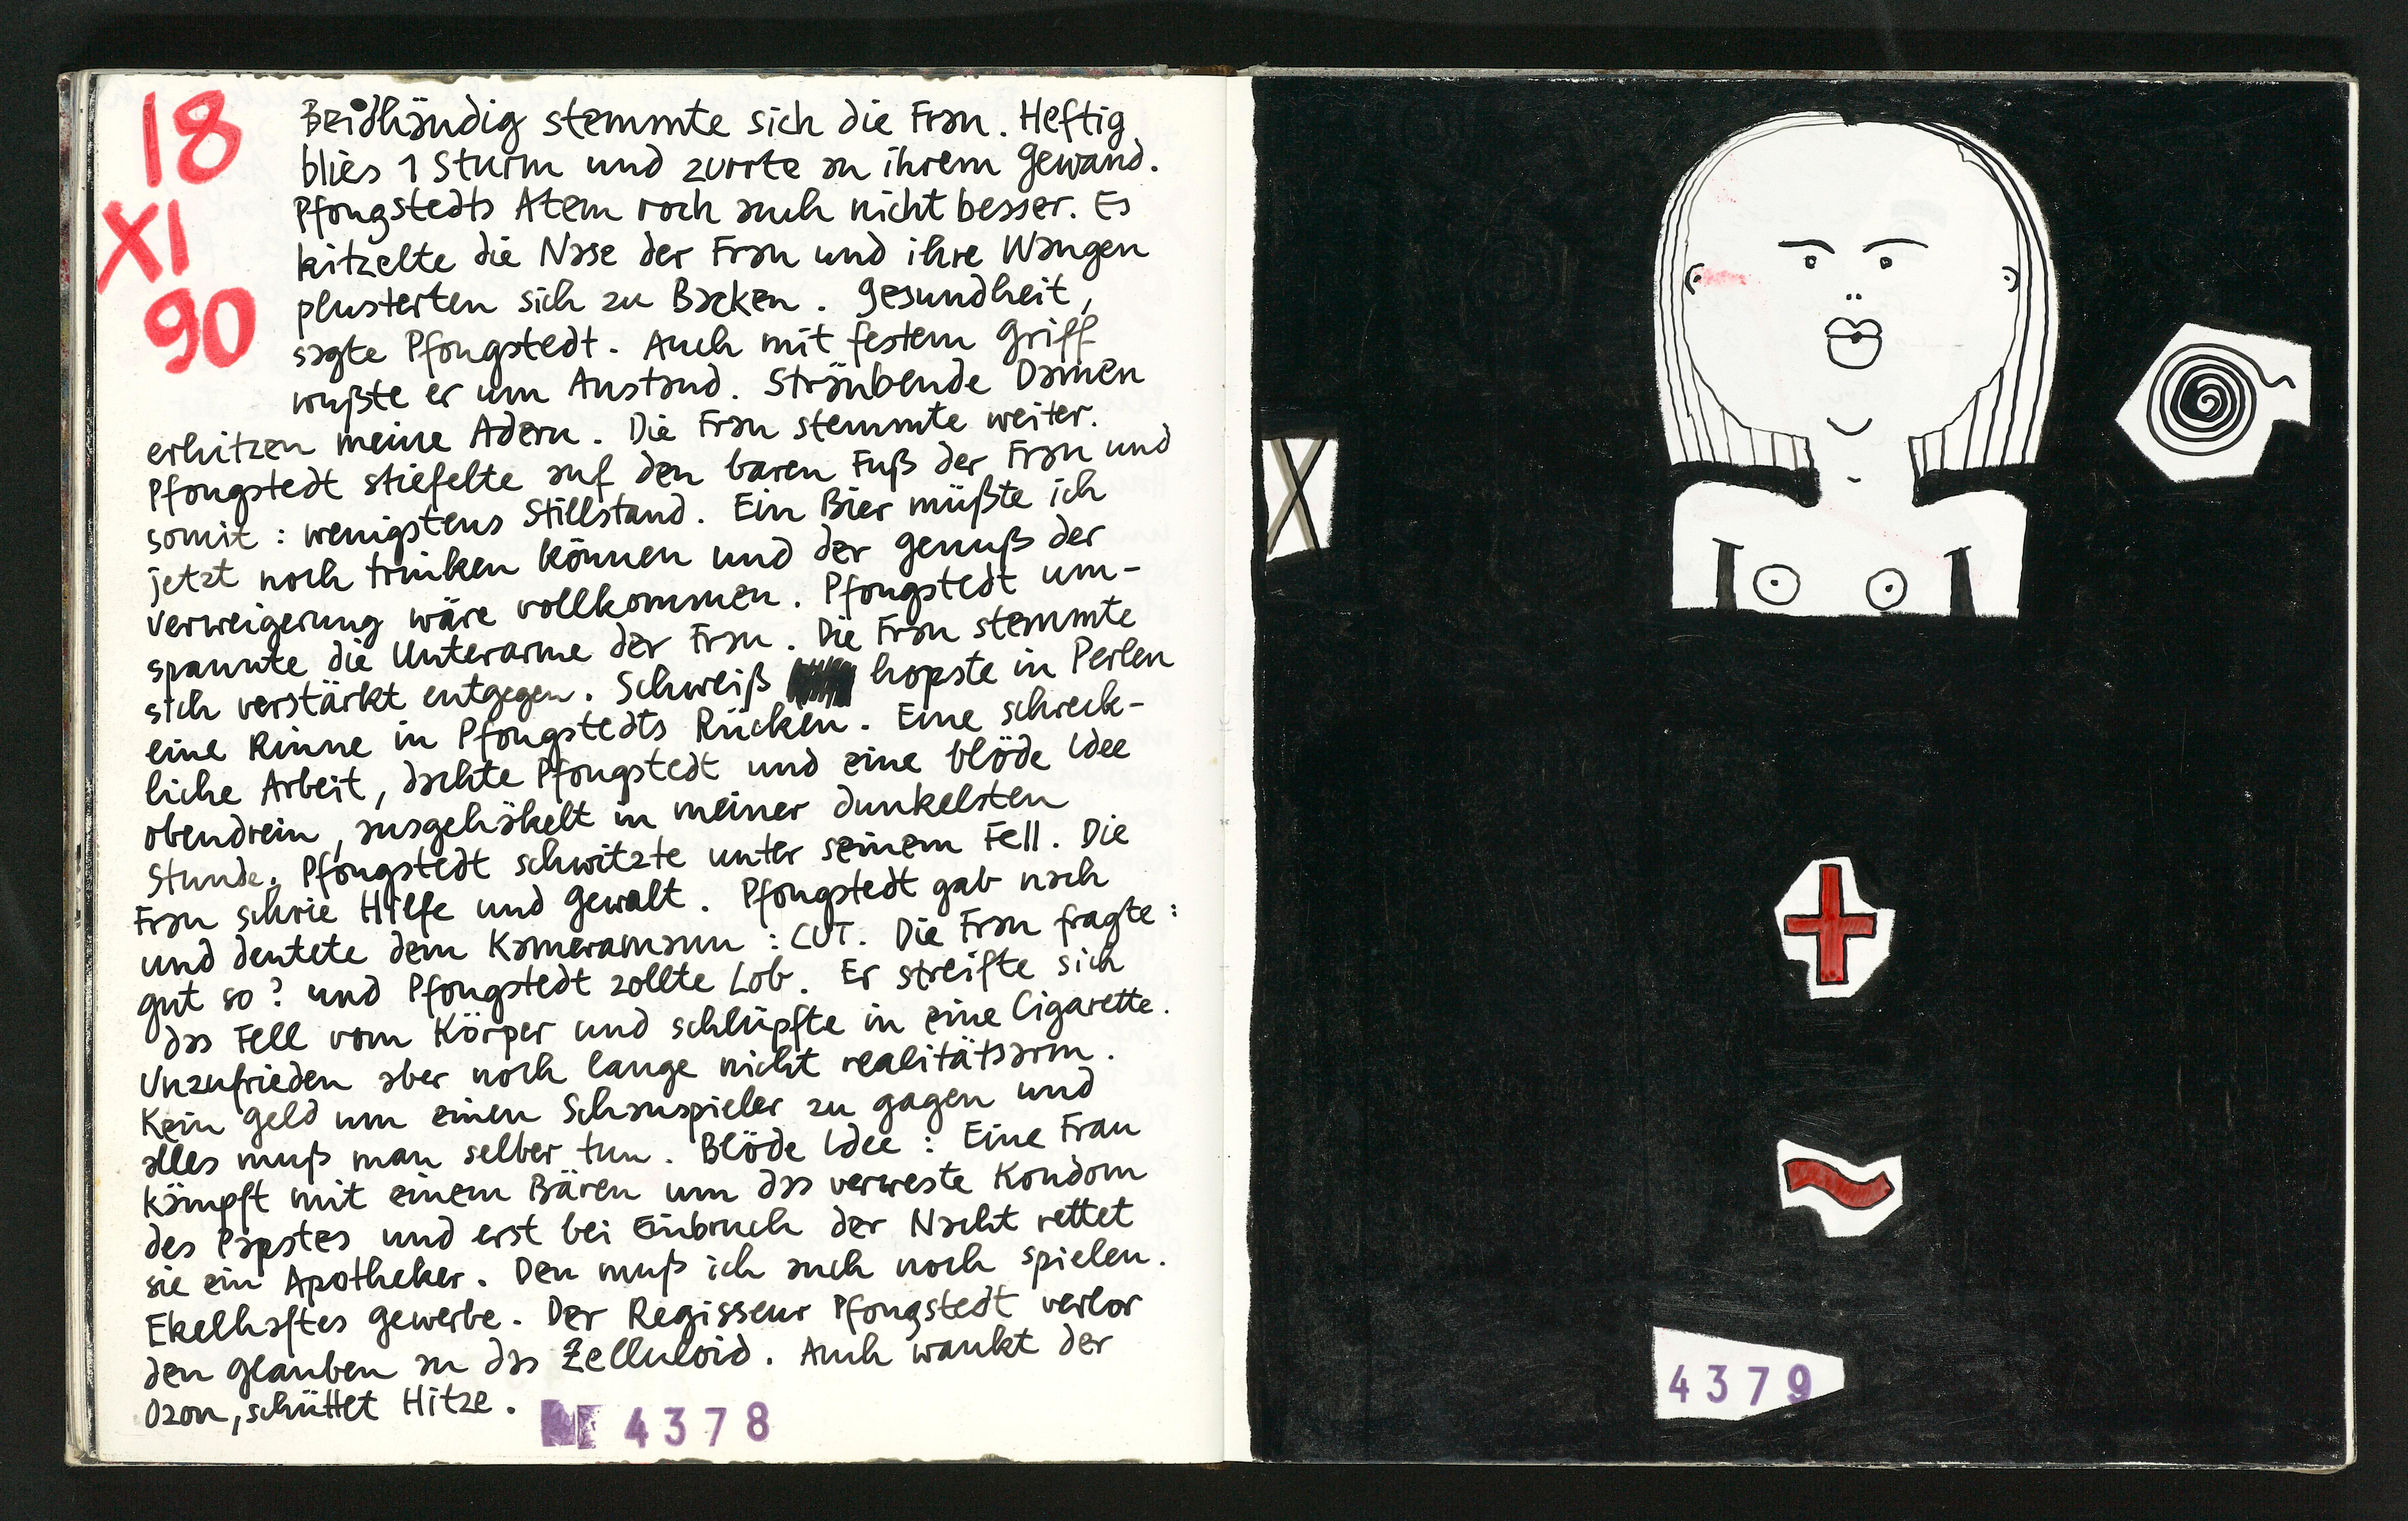 18
XI
90
Beidhändig stemmte sich die Frau. Heftig
blies 1 Sturm und zurrte an ihrem Gewand.
Pfongstedts Atem roch auch nicht besser. Es
kitzelte die Nase der Frau und ihre Wangen
plusterten sich zu Backen. Gesundheit,
sagte Pfongstedt. Auch mit festem Griff
wußte er um Anstand. Sträubende Damen
erhitzen meine Adern. Die Frau stemmte weiter.
Pfongstedt stiefelte auf den baren Fuß der Frau und
somit: wenigstens Stillstand. Ein Bier müßte ich
jetzt noch trinken können und der Genuß der
Verweigerung wäre vollkommen. Pfongstedt um-
spannte die Unterarme der Frau. Die Frau stemmte
sich verstärkt entgegen. Schweiß hopste in Perlen
eine Rinne in Pfongstedts Rücken. Eine schreck-
liche Arbeit, dachte Pfongstedt und eine blöde Idee
obendrein, ausgehäkelt in meiner dunkelsten
Stunde. Pfongstedt schwitzte unter seinem Fell. Die
Frau schrie Hilfe und Gewalt. Pfongstedt gab nach
und deutete dem Kameramann: CUT. Die Frau fragte:
gut so? und Pfongstedt zollte Lob. Er streifte sich
das Fell vom Körper und schlüpfte in eine Cigarette.
Unzufrieden aber noch lange nicht realitätsarm.
Kein Geld um einen Schauspieler zu gagen und
alles muß man selber tun. Blöde Idee: Eine Frau
kämpft mit einem Bären um das verweste Kondom
des Papstes und erst bei Einbruch der Nacht rettet
sie ein Apotheker. Den muß ich auch noch spielen.
Ekelhaftes Gewerbe. Der Regisseur Pfongstedt verlor
den Glauben an das Zelluloid. Auch wankt der
Ozon, schüttet Hitze.
4378
X
4379